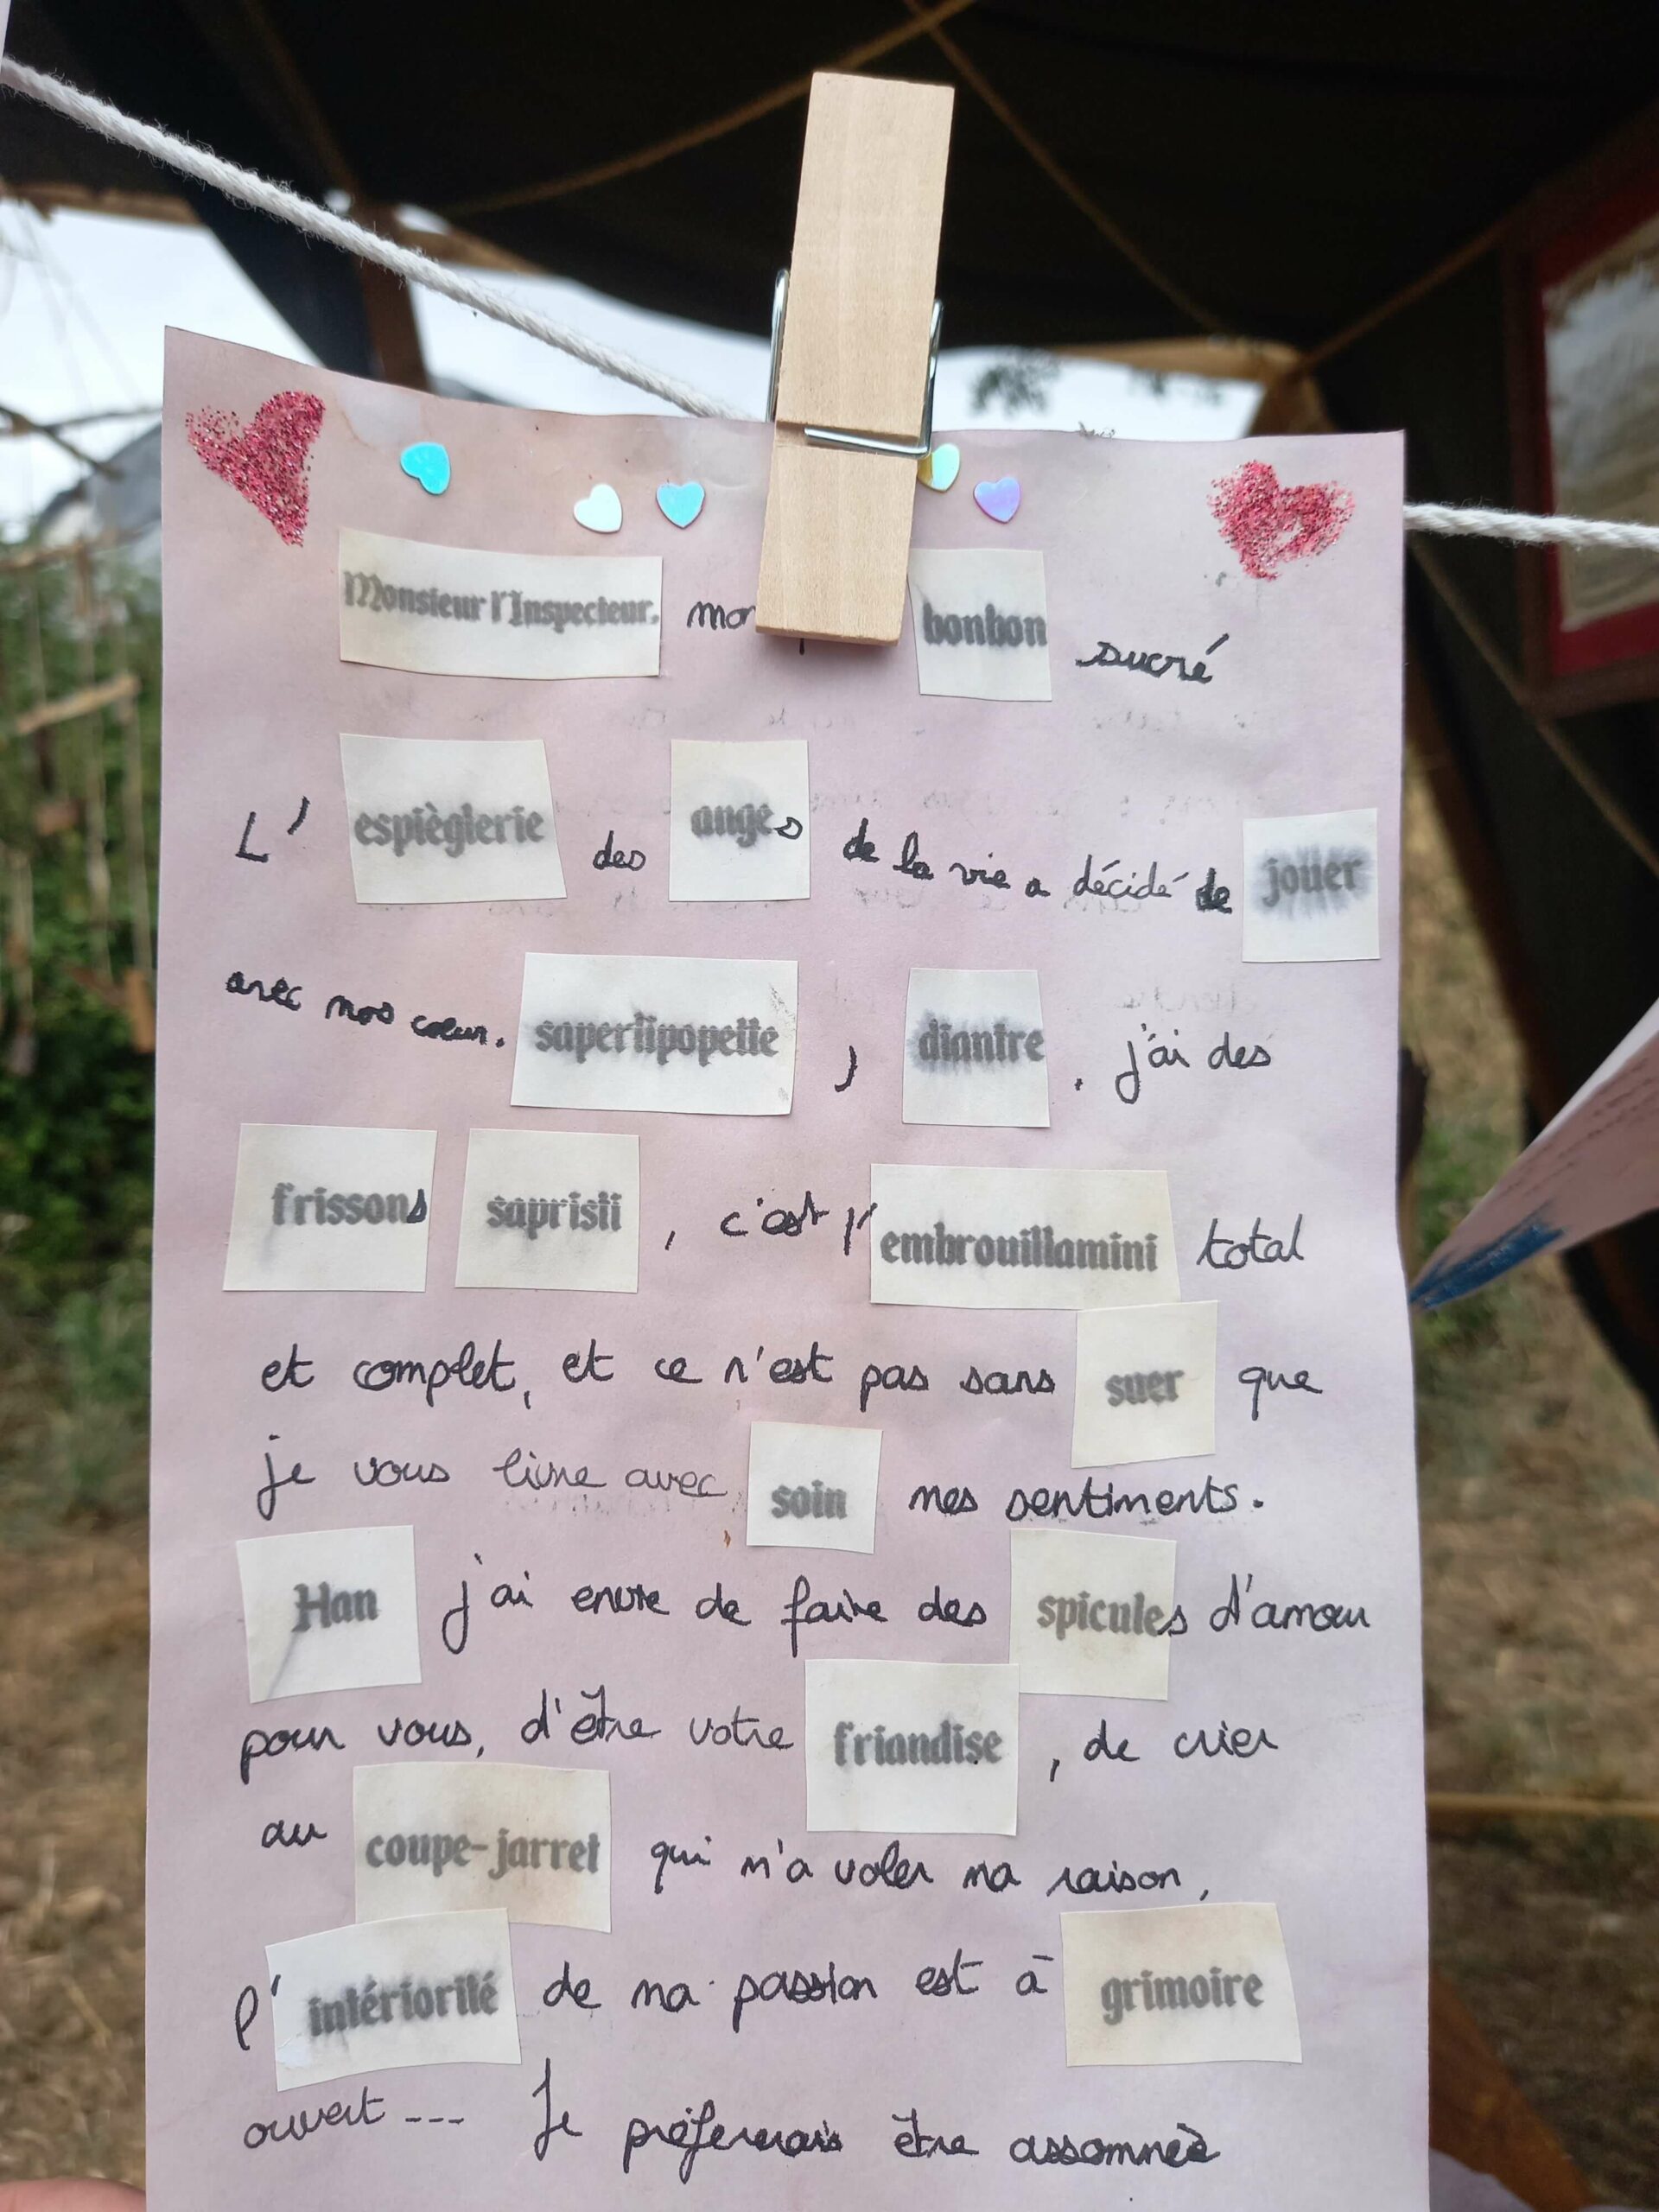 Monsieur l'Inspecteur, bonbon sucré
L' espièglerie des anges de la vie a décidé de jouer
avec nos cœur. saperlipopette , diantre . j'ai des
frissons sapristi , c'est l' embrouillamini total
et complet, et ce n'est pas sans suer que
je vous livre avec soin mes sentiments.
Han j'ai envie de faire des spicules d'amour
pour vous, d'être votre friandise , de crier
au coupe-jarret qui m'a voler ma raison,
l' intériorité de ma passion est à grimoire
ouvert --- Je préfererais être assomnée